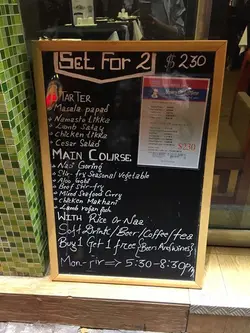 Set For 2 $230
STARTER
Masala papad
Namaste tikka
Lamb Satay
Chicken tikka
Cesar Salad
$230
MAIN COURSE
Nasi Goring
Stir-fry Seasonal Vegetable
Aloo Gobi
Beef Stir-fry
Mixed Seafood Curry
Chicken Makhani
Lamb rogan josh
WITH RICE OR Naa
Soft Drink/Beer/Coffee/tea
Buy 1 Get 1 free (Beer And wines)
Mon-fir => 5:30-8:30pm